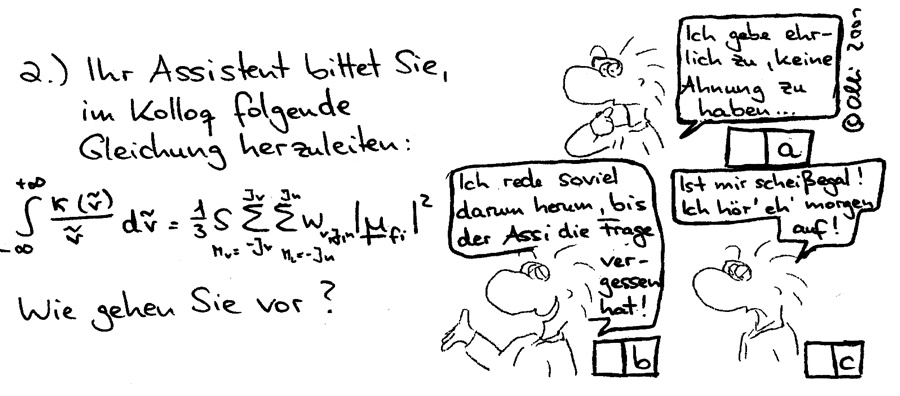 2.) Ihr Assistent bittet Sie,
im Kolloq folgende
Gleichung herzuleiten:
+∞
∫ κ(ṽ)/ṽ dṽ = 1/3 S Σ Σ w |μ_fi|²
-∞
Wie gehen Sie vor?
Ich gebe ehr-
lich zu, keine
Ahnung zu
haben...
a
Ich rede soviel
darum herum, bis
der Assi die Frage
ver-
gessen
hat!
b
Ist mir scheißegal!
Ich hör' eh' morgen
auf!
c